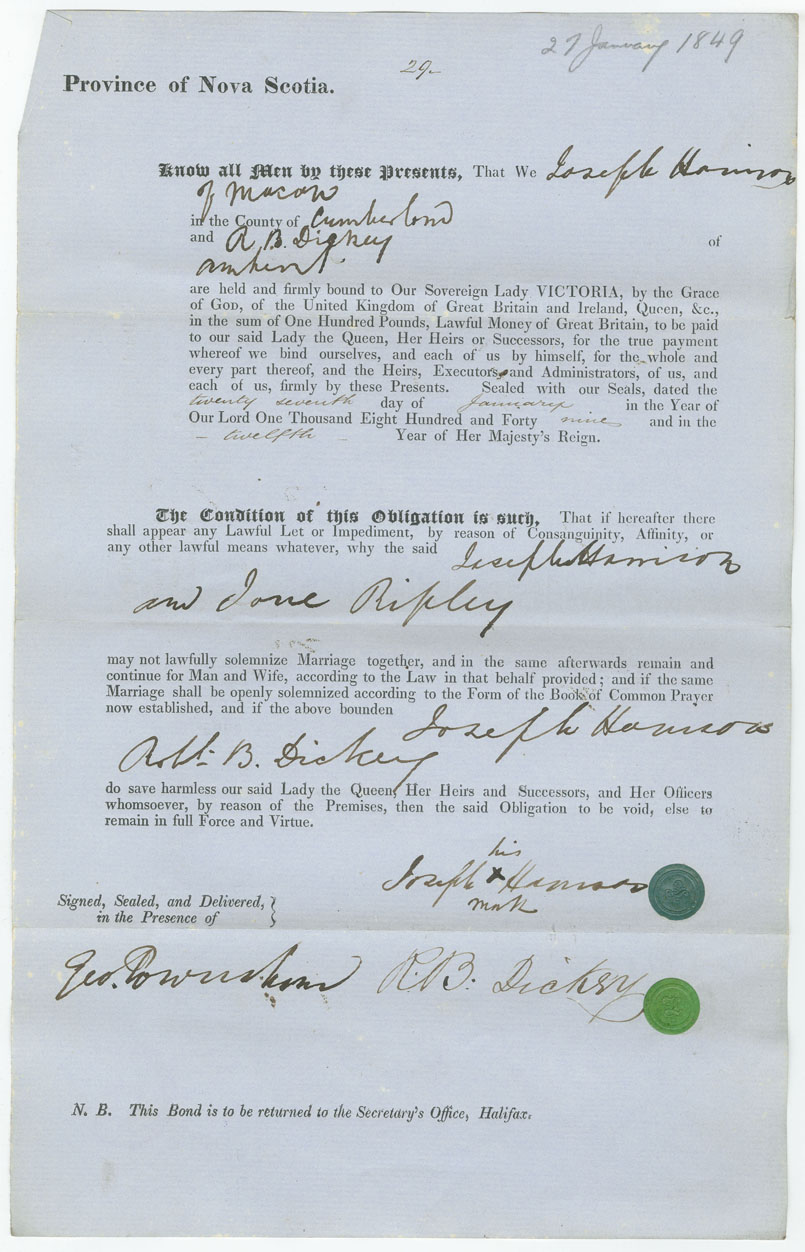 27 January 1849
29-
Province of Nova Scotia.
Know all Men by these Presents, That We Joseph Harrison
of Macan
in the County of Cumberland
and R. B. Dickey of
Amherst
are held and firmly bound to Our Sovereign Lady VICTORIA, by the Grace
of GOD, of the United Kingdom of Great Britain and Ireland, Queen, &c.,
in the sum of One Hundred Pounds, Lawful Money of Great Britain, to be paid
to our said Lady the Queen, Her Heirs or Successors, for the true payment
whereof we bind ourselves, and each of us by himself, for the whole and
every part thereof, and the Heirs, Executors, and Administrators, of us, and
each of us, firmly by these Presents. Sealed with our Seals, dated the
twenty seventh day of January in the Year of
Our Lord One Thousand Eight Hundred and Forty nine and in the
- twelfth - Year of Her Majesty's Reign.
The Condition of this Obligation is such, That if hereafter there
shall appear any Lawful Let or Impediment, by reason of Consanguinity, Affinity, or
any other lawful means whatever, why the said Joseph Harrison
and Jane Ripley
may not lawfully solemnize Marriage together, and in the same afterwards remain and
continue for Man and Wife, according to the Law in that behalf provided; and if the same
Marriage shall be openly solemnized according to the Form of the Book of Common Prayer
now established, and if the above bounden Joseph Harrison
Robt. B. Dickey
do save harmless our said Lady the Queen, Her Heirs and Successors, and Her Officers
whomsoever, by reason of the Premises, then the said Obligation to be void, else to
remain in full Force and Virtue.
his
Joseph x Harrison
mark
Signed, Sealed, and Delivered,
in the Presence of
Geo. Townshend R. B. Dickey
N. B. This Bond is to be returned to the Secretary's Office, Halifax.